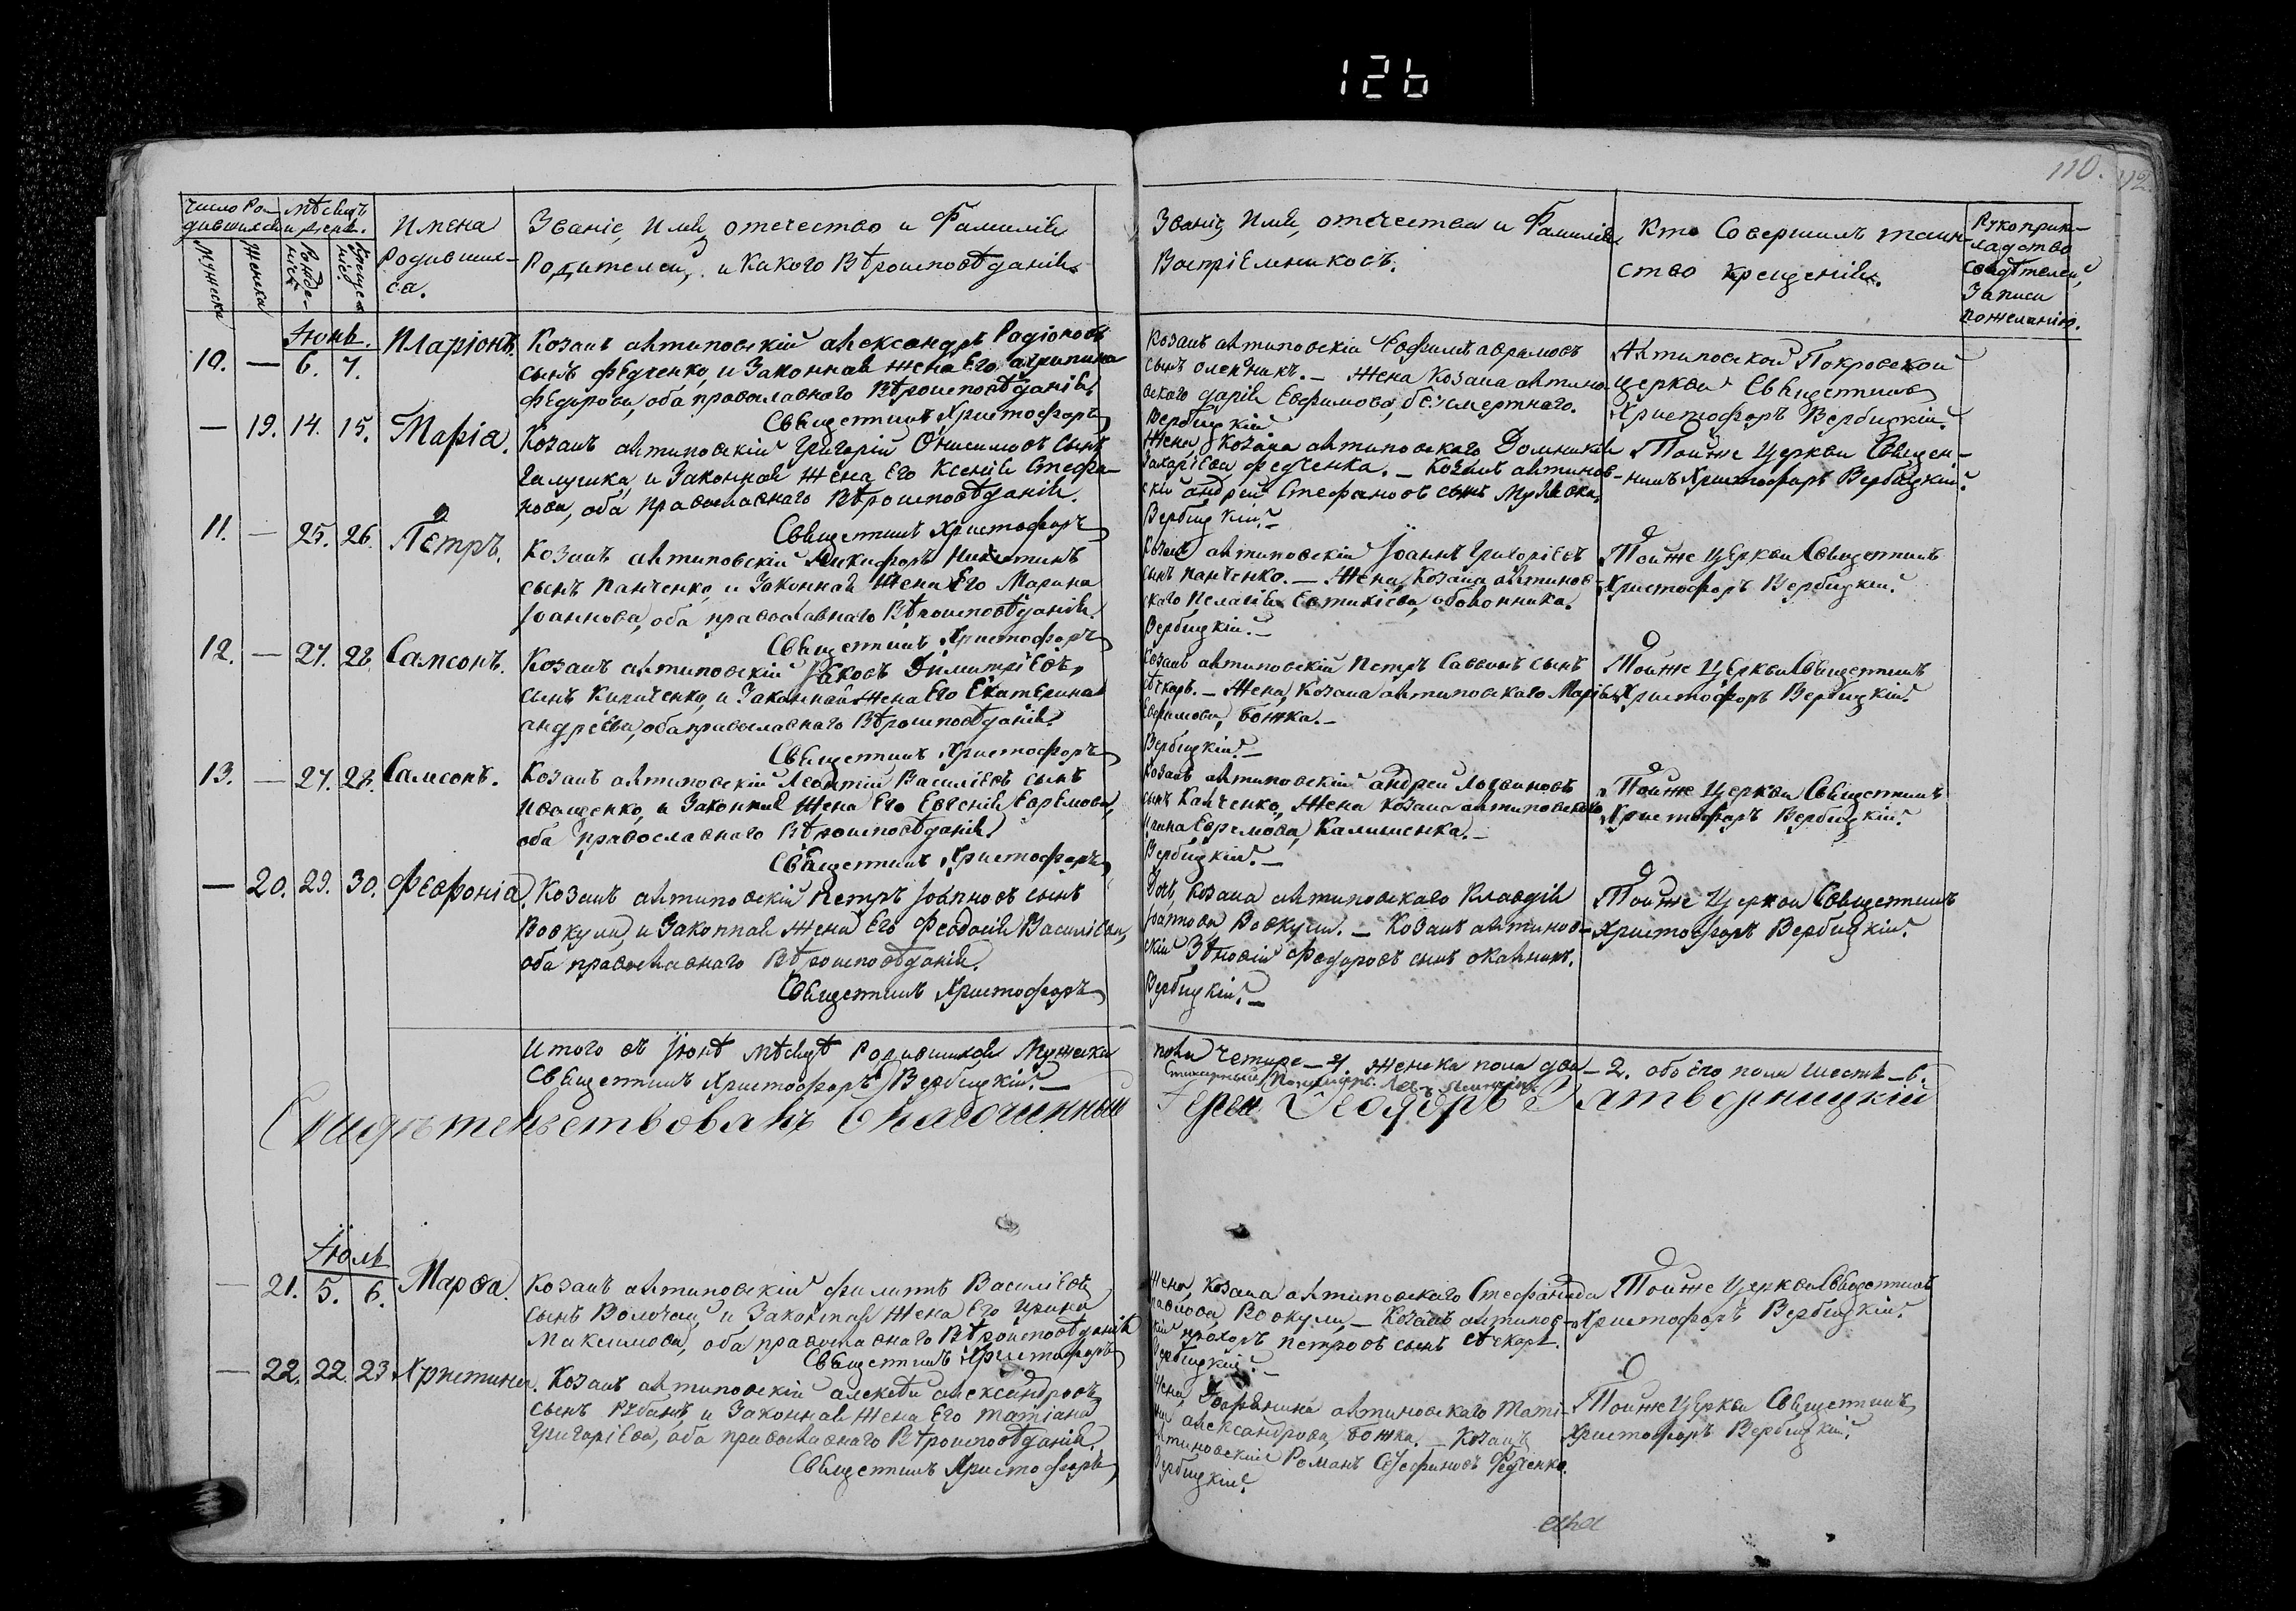 126
110.
Число ро-
дившихся
Мѣсяцъ
и день.
Мужеска
Женска
Рожде-
нія
Креще-
нія
Имена
Родивших-
са.
Званіе, Имя, отечество и Фамилія
Родителей, и Какого Вѣроисповѣданія.
Званіе, Имя, отечество и Фамилія
Воспріемниковъ.
Кто Совершилъ таин-
ство крещенія.
Рукоприк-
ладство
Свидѣтелей
Записи
пожеланію.
Іюнь.
10. — 6. 7. Иларіонъ.
Козакъ антиповскій александръ Радіоновъ
сынъ федченко, и Законная жена Его агрипина
федорова, оба православнаго Вѣроисповѣданія.
Священникъ Христофоръ
Козакъ антиповскій Ефимъ аврамовъ
сынъ олейникъ. — Жена Козака антипо-
вскаго дарія Евфимова, безсмертнаго.
Вербицкій
Антиповской Покровской
церкви Священникъ
Христофоръ Вербицкій.
— 19. 14. 15. Марія.
Козакъ антиповскій Григорій Онисимовъ сынъ
Галушка, и Законная Жена Его Ксенія Стефа-
нова, оба православнаго Вѣроисповѣданія.
Священникъ Христофоръ
Жена Козака антиповскаго Домникія
Захаріева федченка. — Козакъ антипов-
скій андрей Стефановъ сынъ
Вербицкій. —
Тойже Церкви Священ-
никъ Христофоръ Вербицкій.
11. — 25. 26. Петръ.
Козакъ антиповскій Никифоръ Никитинъ
сынъ панченко, и Законная Жена Его Марина
Іоаннова, оба православнаго Вѣроисповѣданія.
Священникъ Христофоръ
Козакъ антиповскій Іоаннъ Григоріевъ
сынъ панченко. — Жена Козака антипов-
скаго Пелагія Евтихіева, оболонника.
Вербицкій. —
Тойже Церкви Священникъ
Христофоръ Вербицкій.
12. — 27. 28. Самсонъ.
Козакъ антиповскій Іаковъ Димитріевъ,
сынъ Кириченко, и Законная Жена Его Екатерина
андреева, оба православнаго Вѣроисповѣданія.
Священникъ Христофоръ
Козакъ антиповскій Петръ Саввинъ сынъ
сѣкаръ. — Жена Козака антиповскаго Марія
Евфимова, Божка. —
Вербицкій. —
Тойже Церкви Священникъ
Христофоръ Вербицкій.
13. — 27. 28. Самсонъ.
Козакъ антиповскій Леонтій Василіевъ сынъ
Иващенко, и Законная Жена Его Евгенія Ефремова,
оба православнаго Вѣроисповѣданія.
Священникъ Христофоръ
Козакъ антиповскій андрей Логвиновъ
сынъ Калченко, Жена Козака антиповскаго
Ирина Ефремова, Калиненка. —
Вербицкій. —
Тойже Церкви Священникъ
Христофоръ Вербицкій.
— 20. 29. 30. Феофонія.
Козакъ антиповскій Петръ Іоанновъ сынъ
Вовкула, и Законная Жена Его Феодосія Василіева,
оба православнаго Вѣроисповѣданія.
Священникъ Христофоръ
Дочь Козака антиповскаго Клавдія
Вовкули. — Козакъ антипов-
скій Зѣновій Федоровъ сынъ
Вербицкій. —
Тойже Церкви Священникъ
Христофоръ Вербицкій.
Итого въ Іюнѣ мѣсяцѣ Родившихся Мужеска
пола четыре — 4. Женска пола два — 2. обоего пола шесть — 6.
Священникъ Христофоръ Вербицкій. —
Свидѣтельствовалъ Благочинный
Іерей Ѳеодоръ Пятворницкій
Іюль
— 21. 5. 6. Марѳа.
Козакъ антиповскій филиппъ Василіевъ,
сынъ Волочай, и Законная Жена Его Ирина
Максимова, оба православнаго Вѣроисповѣданія
Священникъ Христофоръ
Жена Козака антиповскаго Стефанида
Павлова, Вовкули, — Козакъ антипов-
скій прохоръ петровъ сынъ сѣкаръ.
Вербицкій. —
Тойже Церкви Священникъ
Христофоръ Вербицкій.
— 22. 22. 23. Христина.
Козакъ антиповскій алексѣй александровъ
сынъ Рубанъ, и Законная Жена Его татіана
Григоріева, оба православнаго Вѣроисповѣданія.
Священникъ Христофоръ
Жена Дворянина антиповскаго Тати-
на александрова Божка. — Козакъ
антиповскій Романъ Стефановъ Федченко.
Вербицкій.
Тойже Церкви Священникъ
Христофоръ Вербицкій.